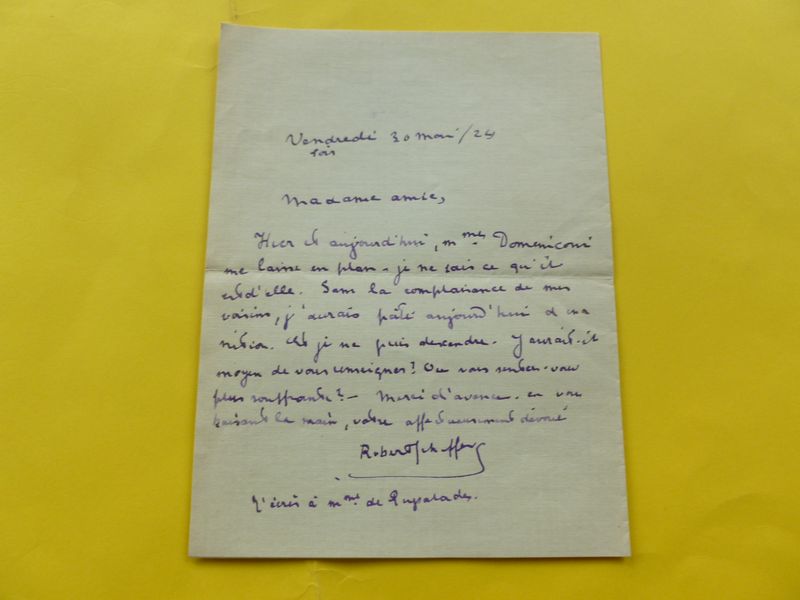 Vendredi 30 mai/24
soir
Madame amie,
Hier et aujourd'hui, Mme Domeniconi
me laisse en plan. je ne sais ce qu'il
est d'elle. Sans la complaisance de mes
voisins, j'aurais pâti aujourd'hui d'ina
nition. Et je ne puis descendre. Y aurait-il
moyen de vous renseigner? Ou vous sentez-vous
plus souffrante? - Merci d'avance. en vous
baisant la main, votre affectueusement dévoué
Robert Scheffer
J'écris à Mme de